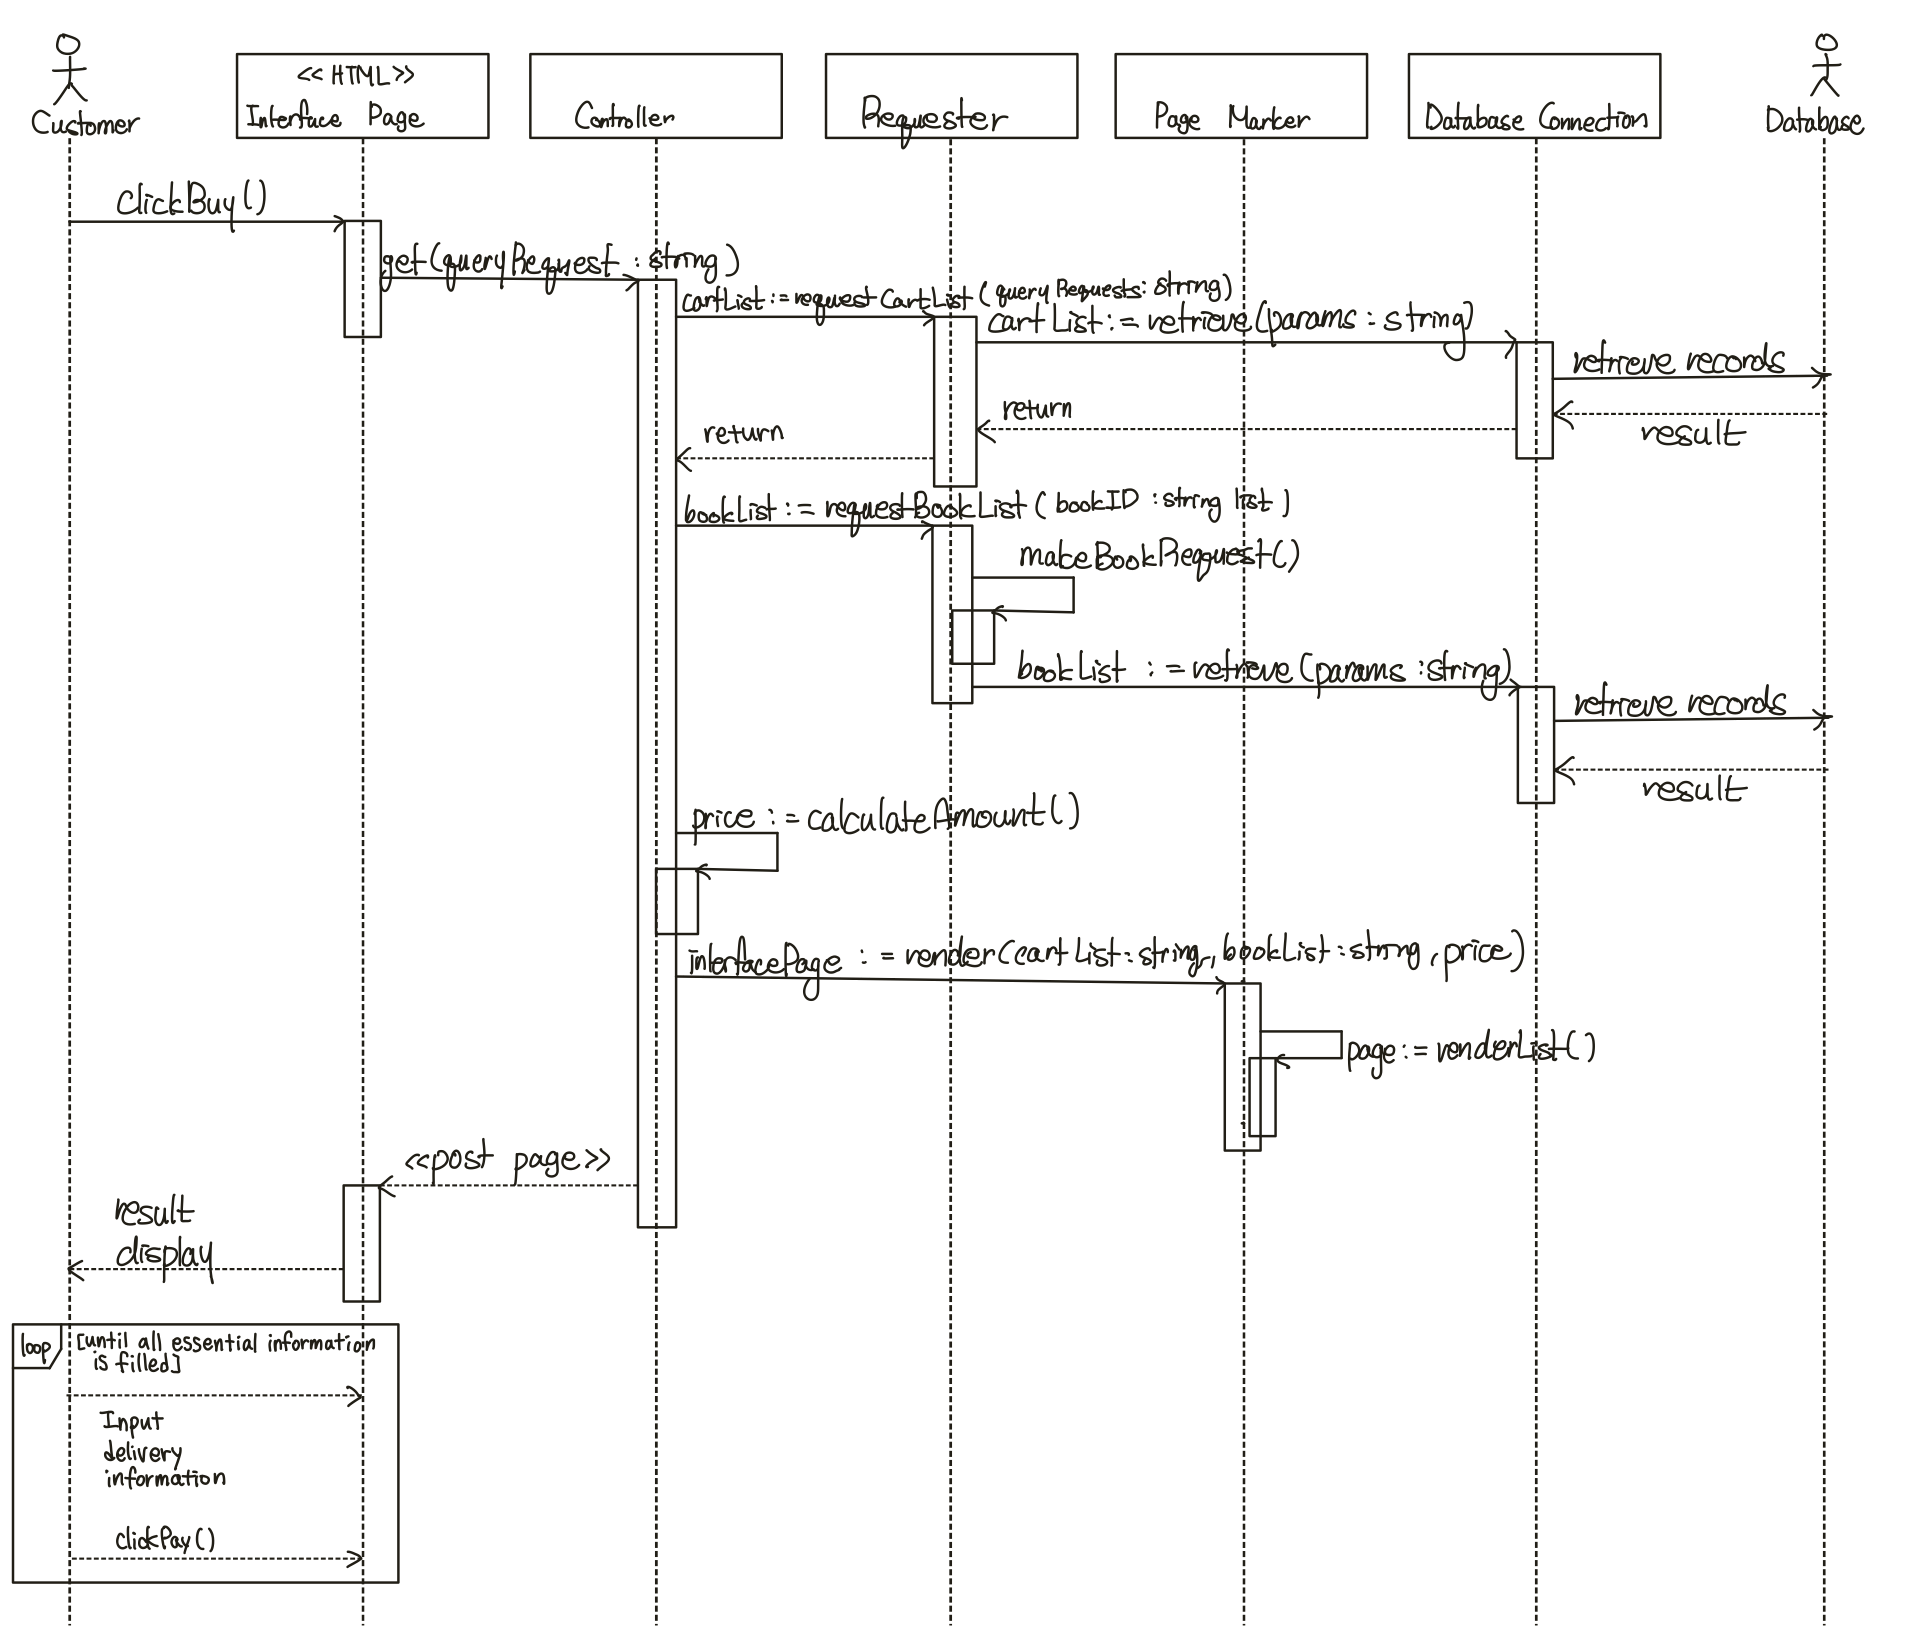 << HTML >>
Customer
Interface Page
Controller
Requester
Page Marker
Database Connection
Database
clickBuy()
get(queryRequest : string)
cartList := requestCartList (queryRequests: string)
cartList := retrieve(params : string)
retrieve records
return
return
result
bookList := requestBookList (bookID : string list)
makeBookRequest()
bookList := retrieve (params :string)
retrieve records
result
price := calculateAmount()
interfacePage := render(cartList:string, bookList:string, price)
page := renderList()
<<post page>>
result
display
loop
[until all essential information
is filled]
Input
delivery
information
clickPay()